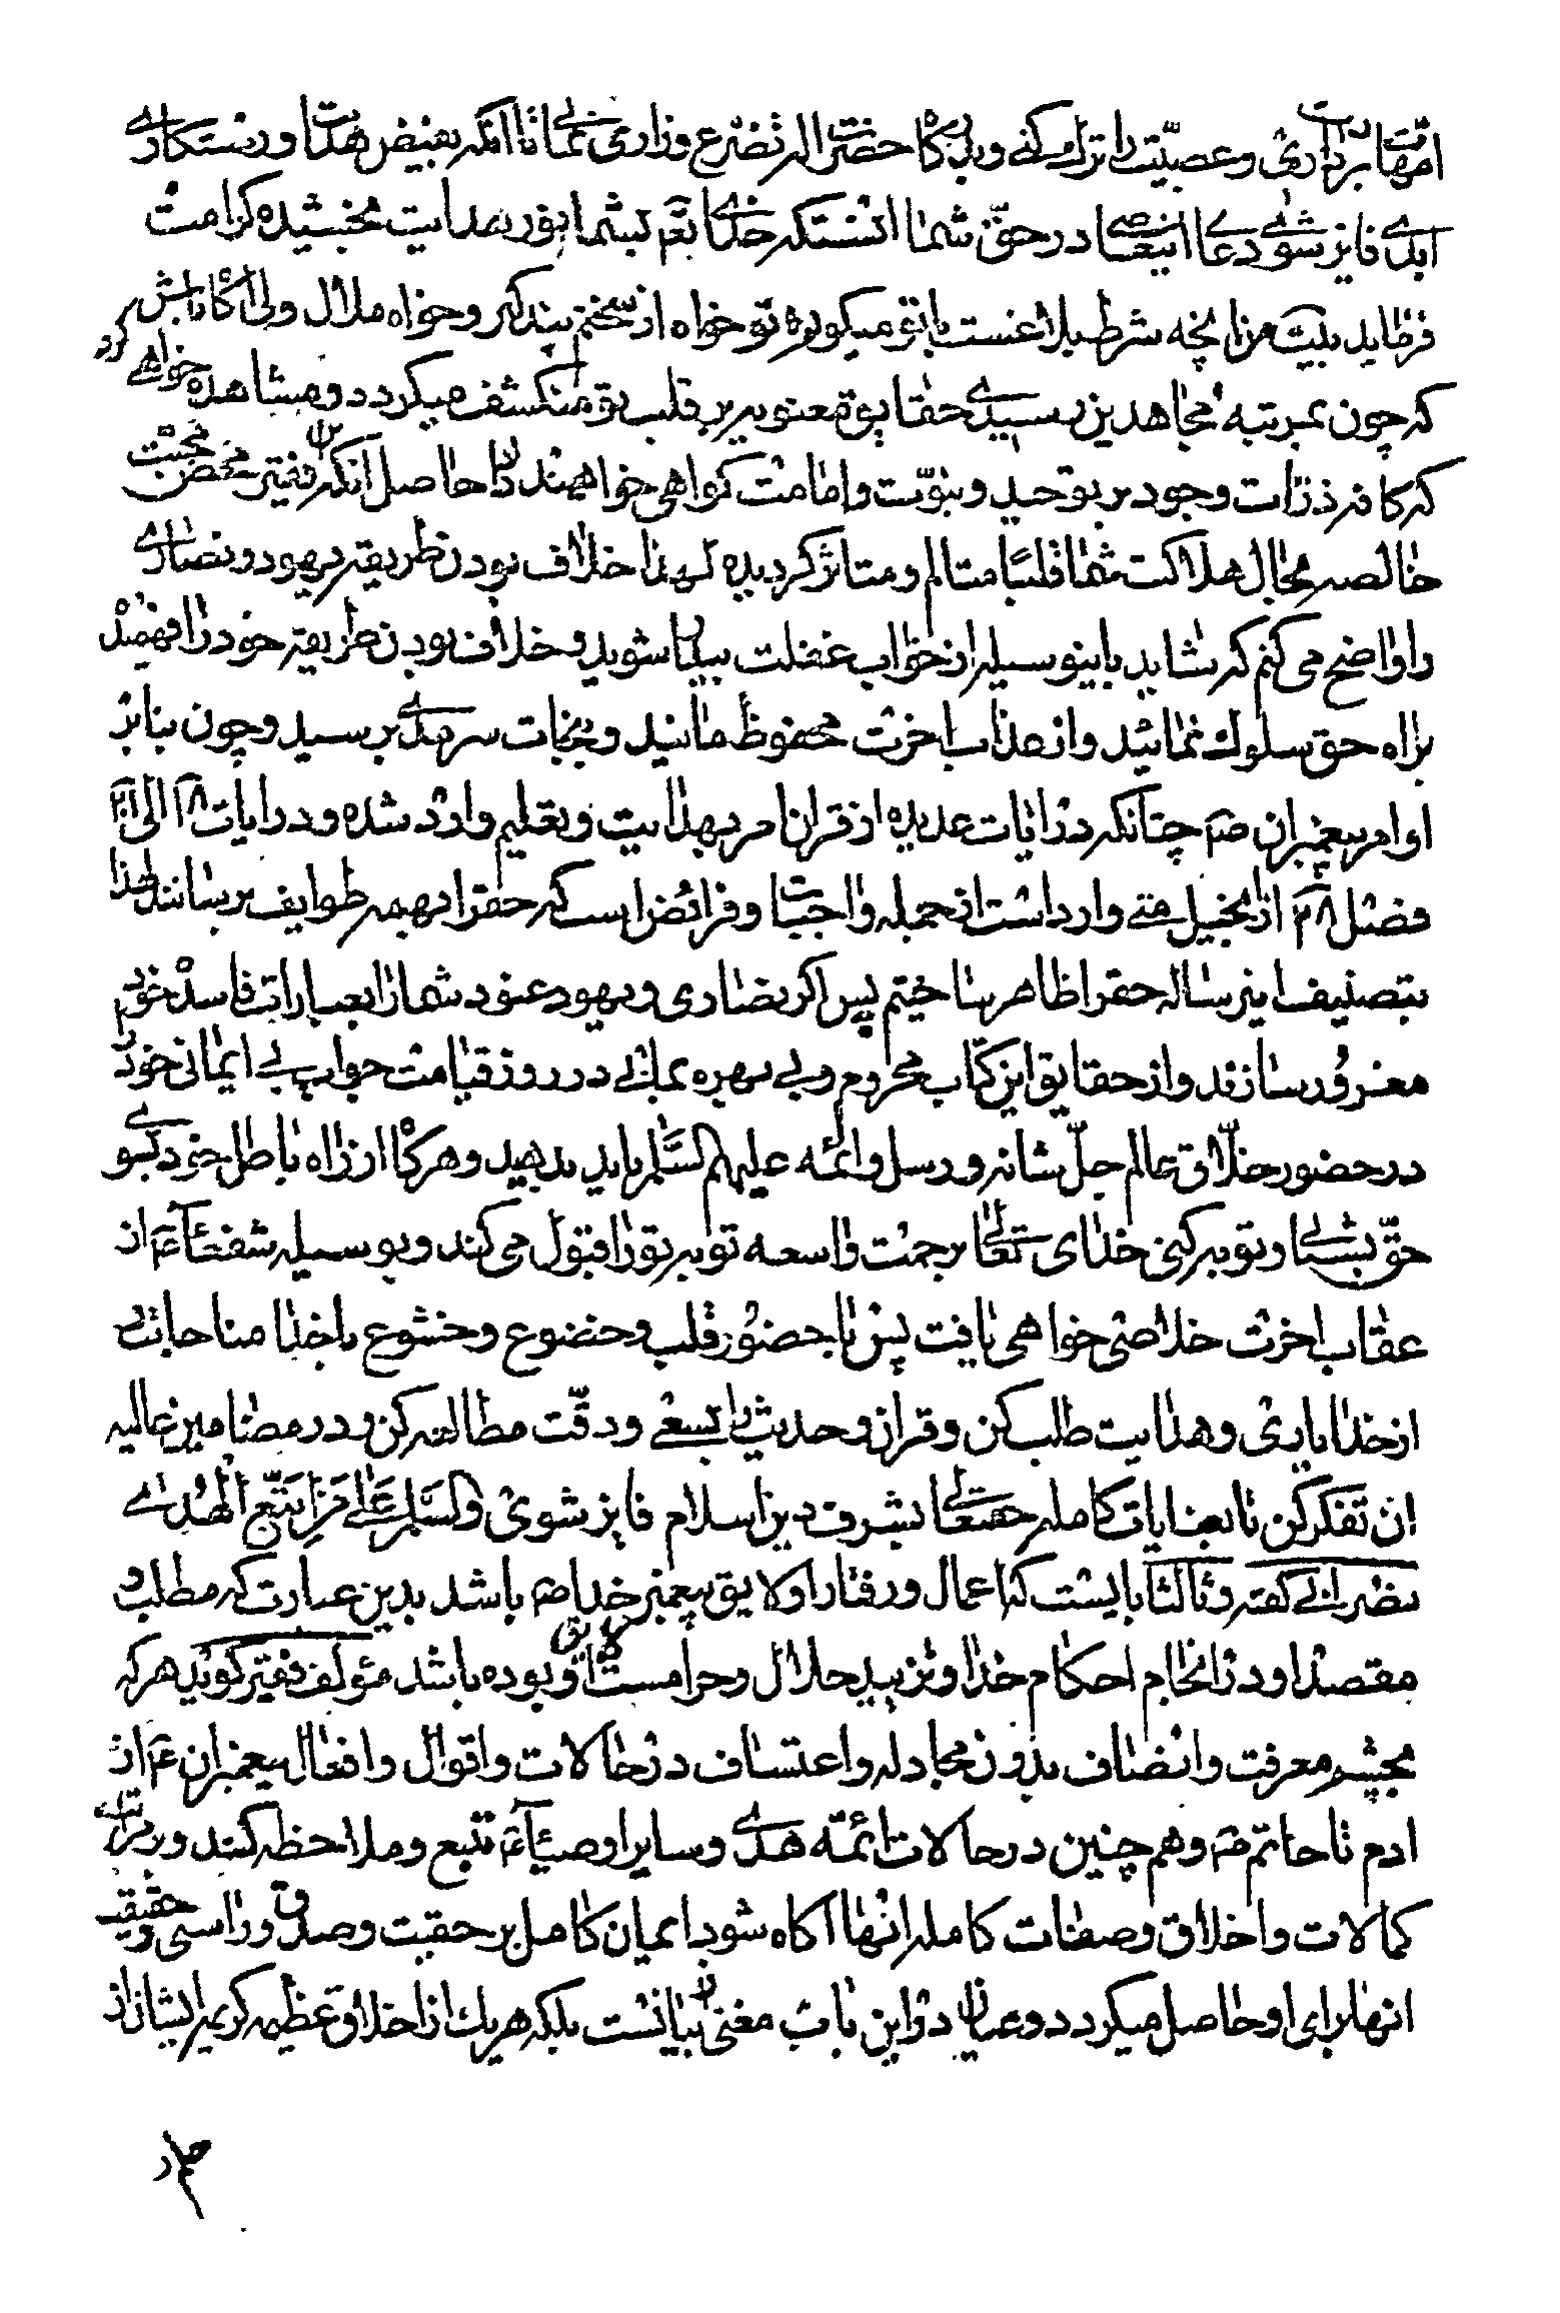 امهات برداری و عصبیّت را ترک کنی و بدرگاه حضرت اله تضرّع و زاری نمائی تا آنکه بفیض هدایت و رستکاری
ابدی فایز شوی دعا انیعاصی در حقّ شما اینستکه خدای تعم بشما نور هدایت بخشیده کرامت
فرماید بیت من انچه شرط بلاغست با تو میکویم تو خواه از سخنم پند کیر و خواه ملال ولی آگاه باش
که چون بمرتبهٔ مجاهدین رسیدی حقایق معنویه بر قلب تو منکشف میکردد و مشاهده خواهی کرد
که کافه ذرّات وجود بر توحید و نبوّت و امامت کواهی خواهند داد حاصل آنکه این فقیر محض محبّت
خالصه بحال هلاکت شما قلباً متالم و متاثر کردیده لهذا خلاف بودن طریقه یهود و نصاری
را واضح می کنم که شاید باینوسیله از خواب غفلت بیدار شوید و خلاف بودن طریقه خود را فهمید
براه حق سلوک نمائید و از عذاب اخرت محفوظ مانید و بنجات سرمدی برسید و چون بنا بر
اوامر پیغمبران ص چنانکه در ایات عدیده از قران امر بهدایت و تعلیم وارد شده و در ایات ۱۸ الی ۲۰
فصل ۲۸ از انجیل متی وارد است از جمله واجبات و فرائض است که حقرا بهمه طوایف برسانند لهذا
بتصنیف اینرساله حقرا ظاهر ساختیم پس اکر نصاری و یهود عنود شما را بعبارات فاسد خود
مغرور سازند و از حقایق این کتاب محروم و بی بهره بمانی در روز قیامت جواب بی ایمانی خود را
در حضور خلّاق عالم جلّ شانه و رسل و ائمه علیهم السّلم باید بدهید و هرگاه از راه باطل خود بسوی
حقّ بشتابی و توبه کنی خدای تعالی برحمت واسعه توبه تو را قبول می کند و بوسیله شفعآء از
عقاب اخرت خلاصی خواهی یافت پس با حضور قلب و خضوع و خشوع با خدا مناجات
از خدا یاری و هدایت طلب کن و قران و حدیث را بسعی و دقّت مطالعه کن و در مضامین عالیه
ان تفکر کن تا بعنایات کامله حقتعالی بشرف دین اسلام فایز شوی والسّلم علی من اتبّع الهدی
نصرانی کفته و ثالثا بایست که اعمال و رفتار او لایق پیغمبر خدا باشد بدین عبارت که مطلب و
مقصد او در انجام احکام خدا و تزیید حلال و حرامست او بوده باشد مؤلف فقیر کوید هرکه
بچشم معرفت و انصاف بدون مجادله و اعتساف در حالات و اقوال و افعال پیغمبران ع از
ادم تا خاتم ص و هم چنین در حالات ائمّه هدی و سایر اوصیآء تتبع و ملاحظه کند و بر مراتب
کمالات و اخلاق و صفات کامله انها آکاه شود ایمان کامل بر حقیت و صدق و راستی و حقیقت
انها برای او حاصل میکردد و عیان در این باب مغنی از بیانست بلکه هریک از اخلاق عظیمه کریمه ایشان از